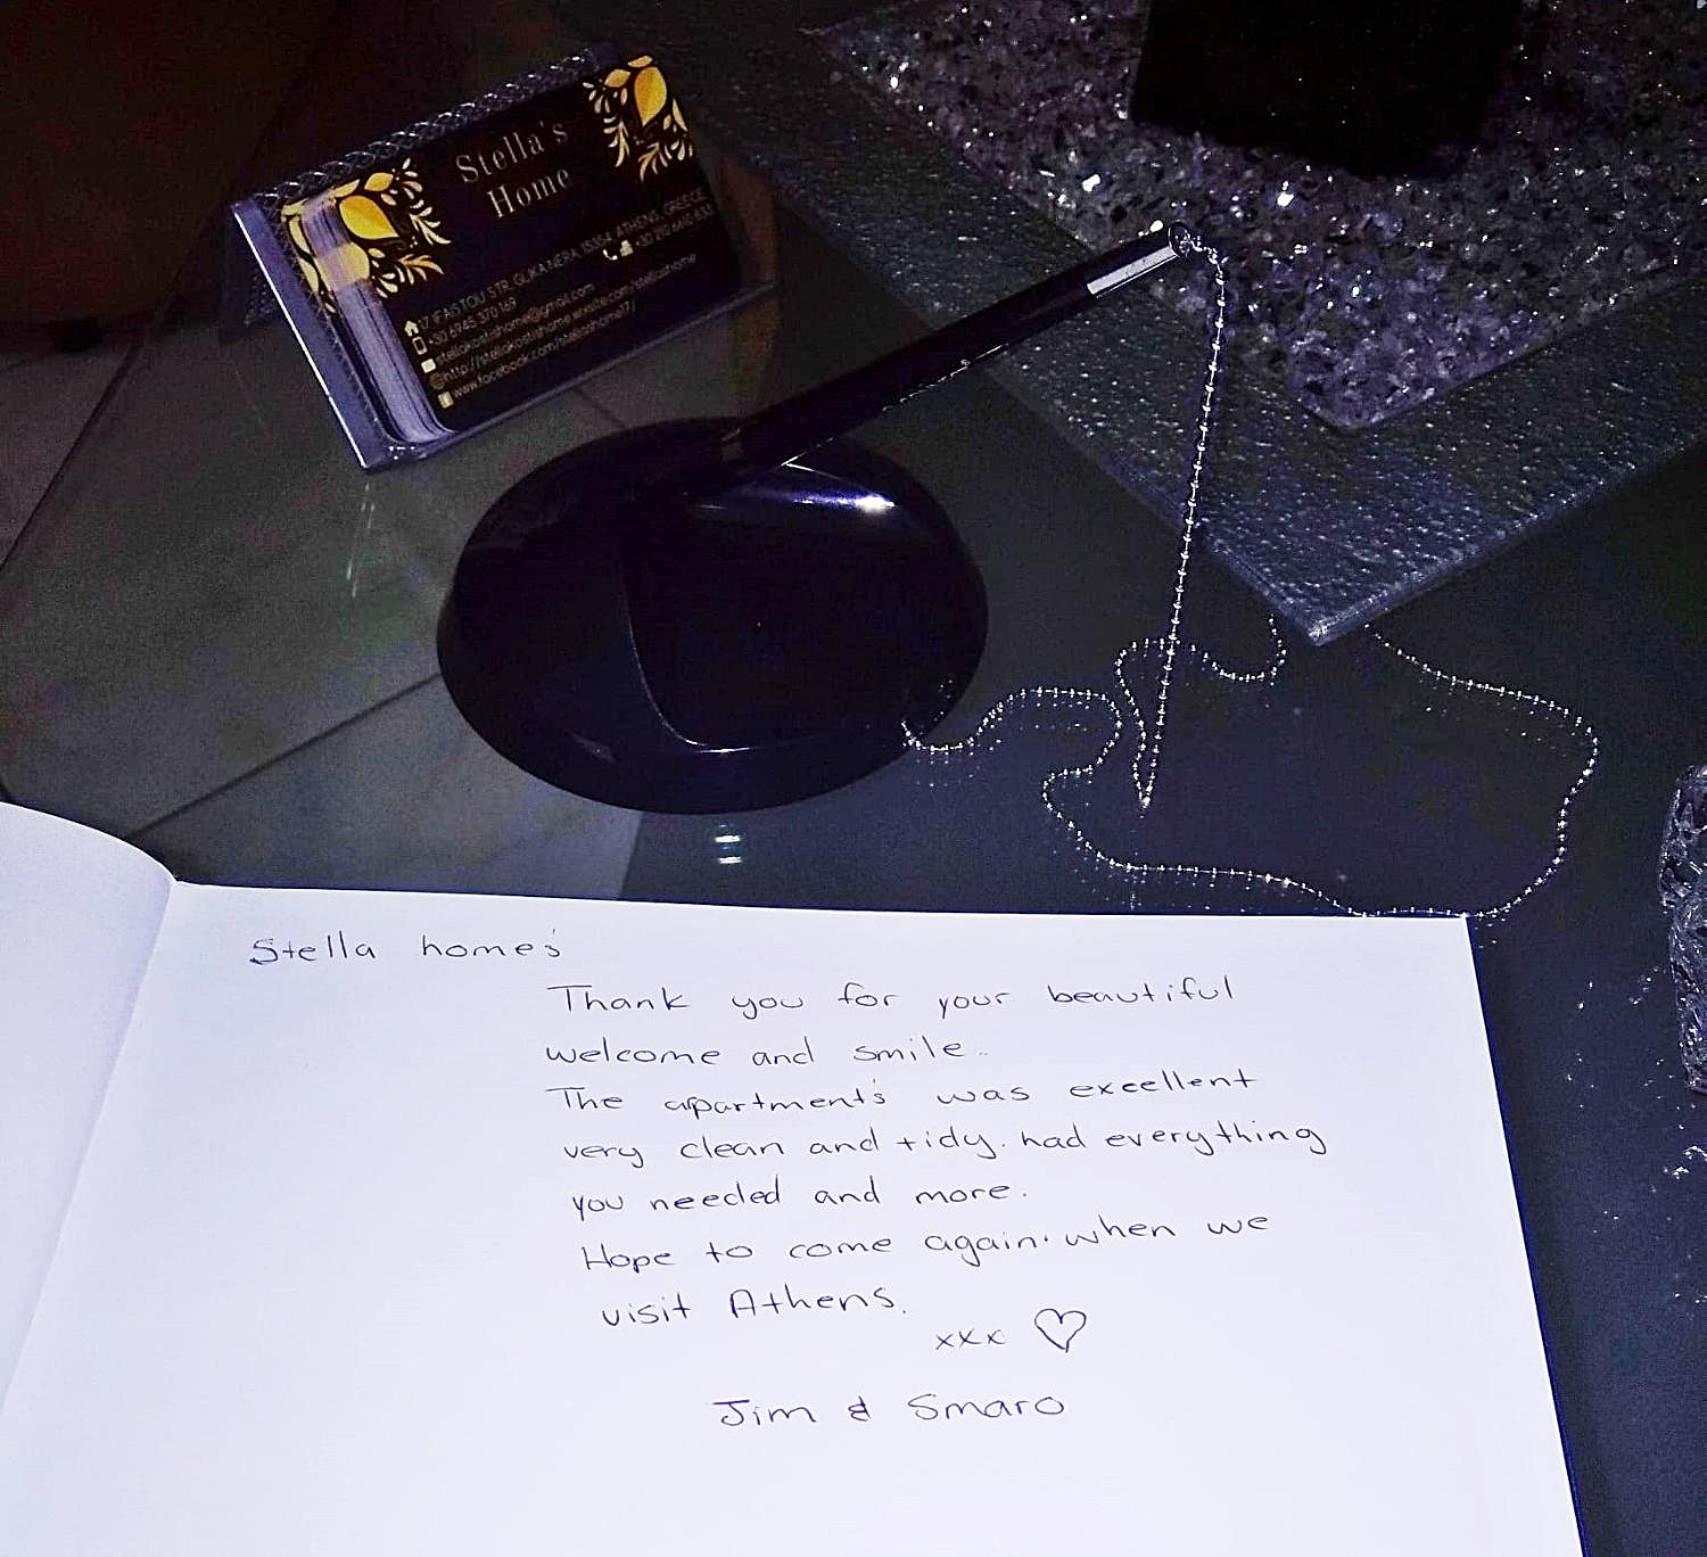 Stella's
Home
17 IFAISTOU STR. GLIKA NERA, 15354 ATHENS, GREECE
+30 6945 370 169
+30 210 6610 633
stellakostishome@gmail.com
@http://stellakostishome.wixsite.com/stellashome
www.facebook.com/stellashome17/
Stella home's
Thank you for your beautiful
welcome and smile..
The apartment's was excellent
very clean and tidy. had everything
you needed and more.
Hope to come again. when we
visit Athens.
xxx ♡
Jim & Smaro